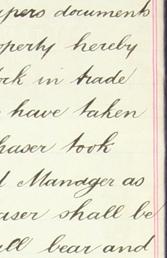 pers documents
operty hereby
ock in trade
have taken
haser took
d Manager as
aser shall be
all bear and